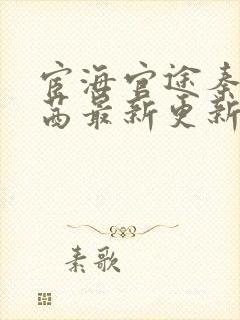 宦海官途秦
茜最新更新
素歌